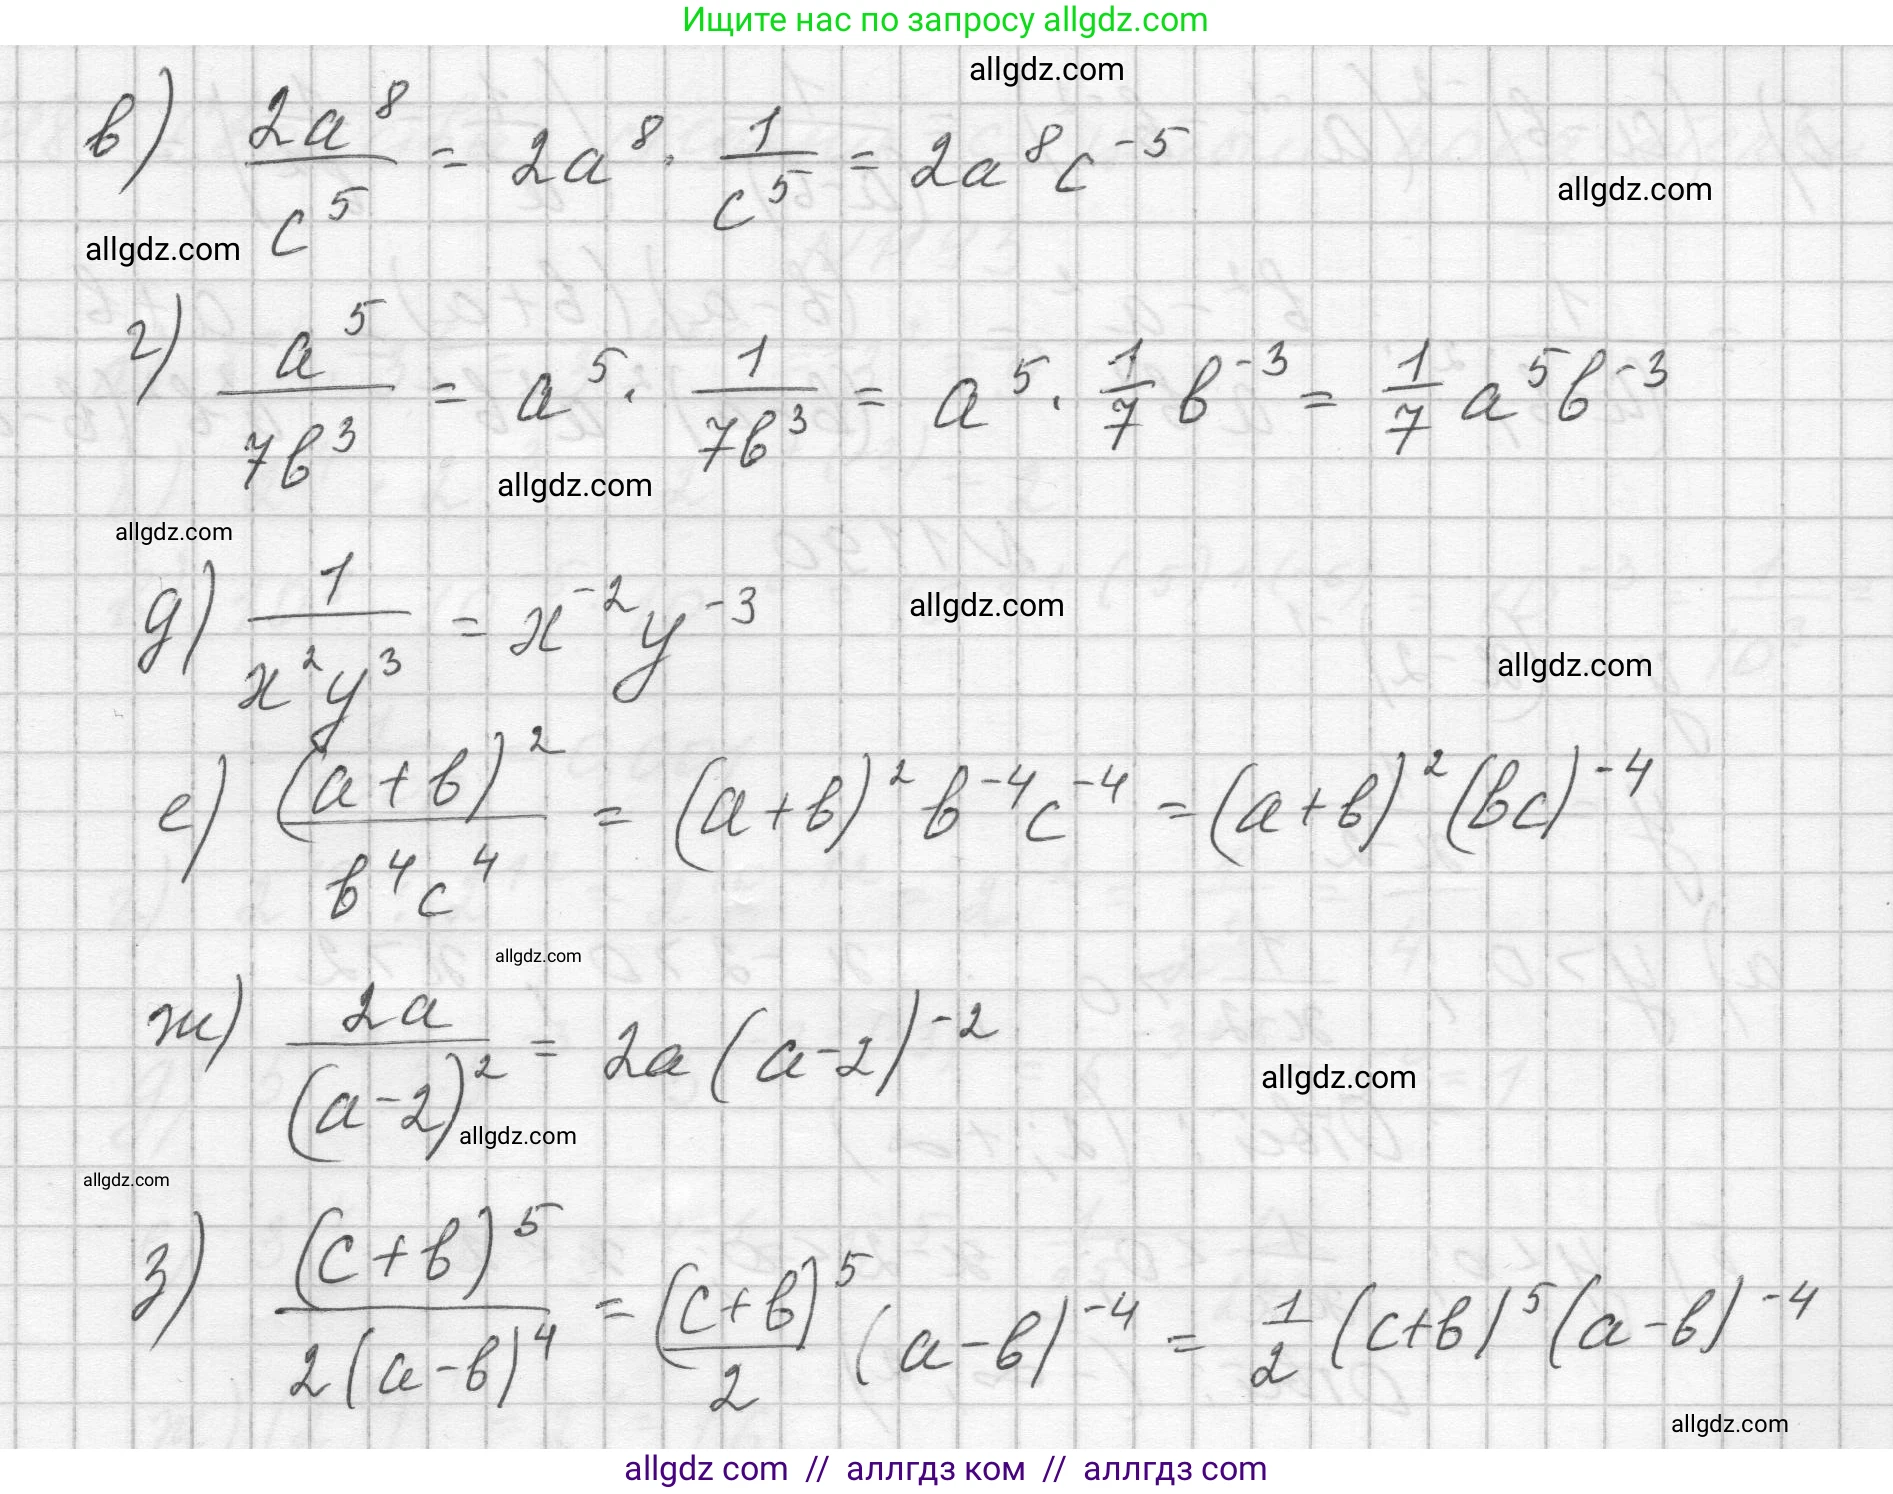 Ищите нас по запросу allgdz.com
allgdz.com
в) 2a⁸/c⁵ = 2a⁸ · 1/c⁵ = 2a⁸c⁻⁵
allgdz.com
allgdz.com
г) a⁵/7b³ = a⁵ · 1/7b³ = a⁵ · 1/7 b⁻³ = 1/7 a⁵b⁻³
allgdz.com
allgdz.com
д) 1/x²y³ = x⁻²y⁻³
allgdz.com
allgdz.com
е) (a+b)²/b⁴c⁴ = (a+b)²b⁻⁴c⁻⁴ = (a+b)²(bc)⁻⁴
allgdz.com
ж) 2a/(a-2)² = 2a(a-2)⁻²
allgdz.com
allgdz.com
allgdz.com
з) (c+b)⁵/2(a-b)⁴ = (c+b)⁵/2 (a-b)⁻⁴ = 1/2 (c+b)⁵(a-b)⁻⁴
allgdz.com
allgdz com // аллгдз ком // аллгдз com